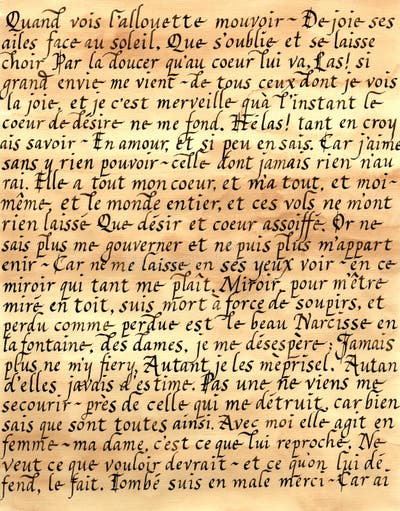 Quand vois l'allouette mouvoir ~ De joie ses
ailes face au soleil, Que s'oublie et se laisse
choir Par la douceur qu'au coeur lui va, Las! si
grand envie me vient ~ de tous ceux dont je vois
la joie, et je c'est merveille quà l'instant le
coeur de désire ne me fond. Hélas! tant en croy
ais savoir ~ En amour, et si peu en sais. Car j'aime
sans y rien pouvoir ~ celle dont jamais rien n'au
rai. Elle a tout mon coeur, et m'a tout, et moi-
même, et le monde entier, et ces vols ne m'ont
rien laissé Que désir et coeur assoiffé. Or ne
sais plus me gouverner et ne puis plus m'appart
enir ~ Car ne me laisse en ses yeux voir ~ en ce
miroir qui tant me plaît. Miroir, pour m'être
miré en toit, suis mort à force de soupirs, et
perdu comme perdue est le beau Narcisse en
la fontaine, des dames, je me désespère; Jamais
plus ne m'y fiery, Autant je les mèprisel. Autan
d'elles javais d'estime. Pas une ne viens me
secourir ~ près de celle qui me détruit, car bien
sais que sont toutes ainsi. Avec moi elle agit en
femme ~ ma dame, c'est ce que lui reproche, Ne
veut ce que vouloir devrait ~ et ce qu'on lui dé
fend, le fait. Tombé suis en male merci ~ Car ai